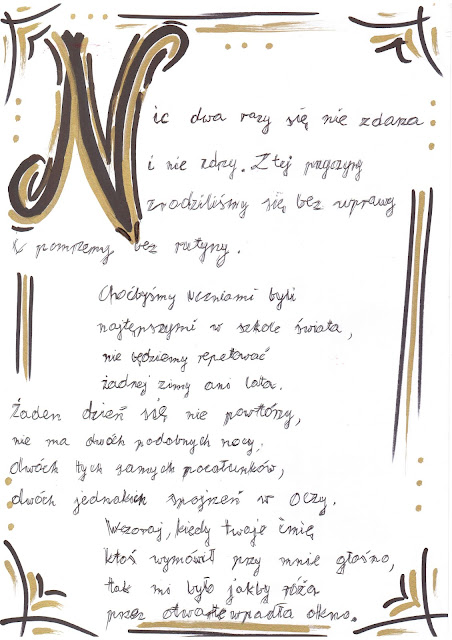 Nic dwa razy się nie zdarza
i nie zdrzy. Z tej przyczyny
zrodziliśmy się bez wprawy
i pomrzemy bez rutyny.
Choćbyśmy uczniami byli
najtępszymi w szkole świata,
nie będziemy repetować
żadnej zimy ani lata.
Żaden dzień się nie powtórzy,
nie ma dwóch podobnych nocy,
dwóch tych samych pocałunków,
dwóch jednakich spojrzeń w oczy.
Wczoraj, kiedy twoje imię
ktoś wymówił przy mnie głośno,
tak mi było jakby róża
przez otwarte wpadła okno.